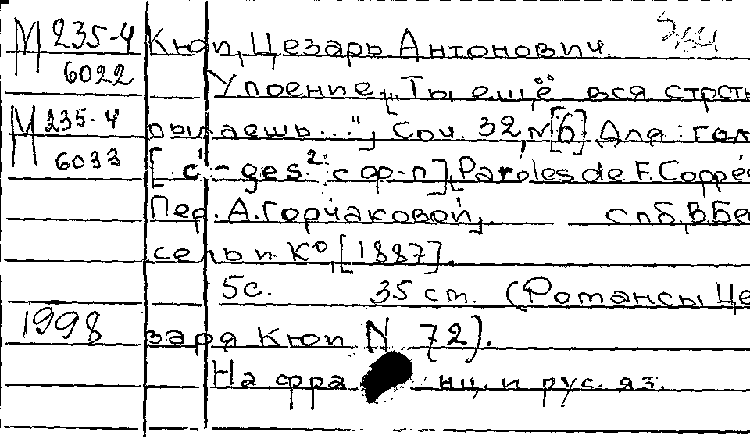 М 235-4 Кюи, Цезарь Антонович.
6022 Упоение „Ты ещё вся страсть
М 235-4 пылаешь..."; Соч. 32, №[6]. Для гол
6033 [c¹-ges²; с ф-п]. Paroles de F. Coppé
Пер. А. Горчаковой. спб, В. Бе
сель и К°, [1887].
5с. 35 cm. (Романсы Це
1998 заря Кюи N 72).
На фра нц. и рус. яз.